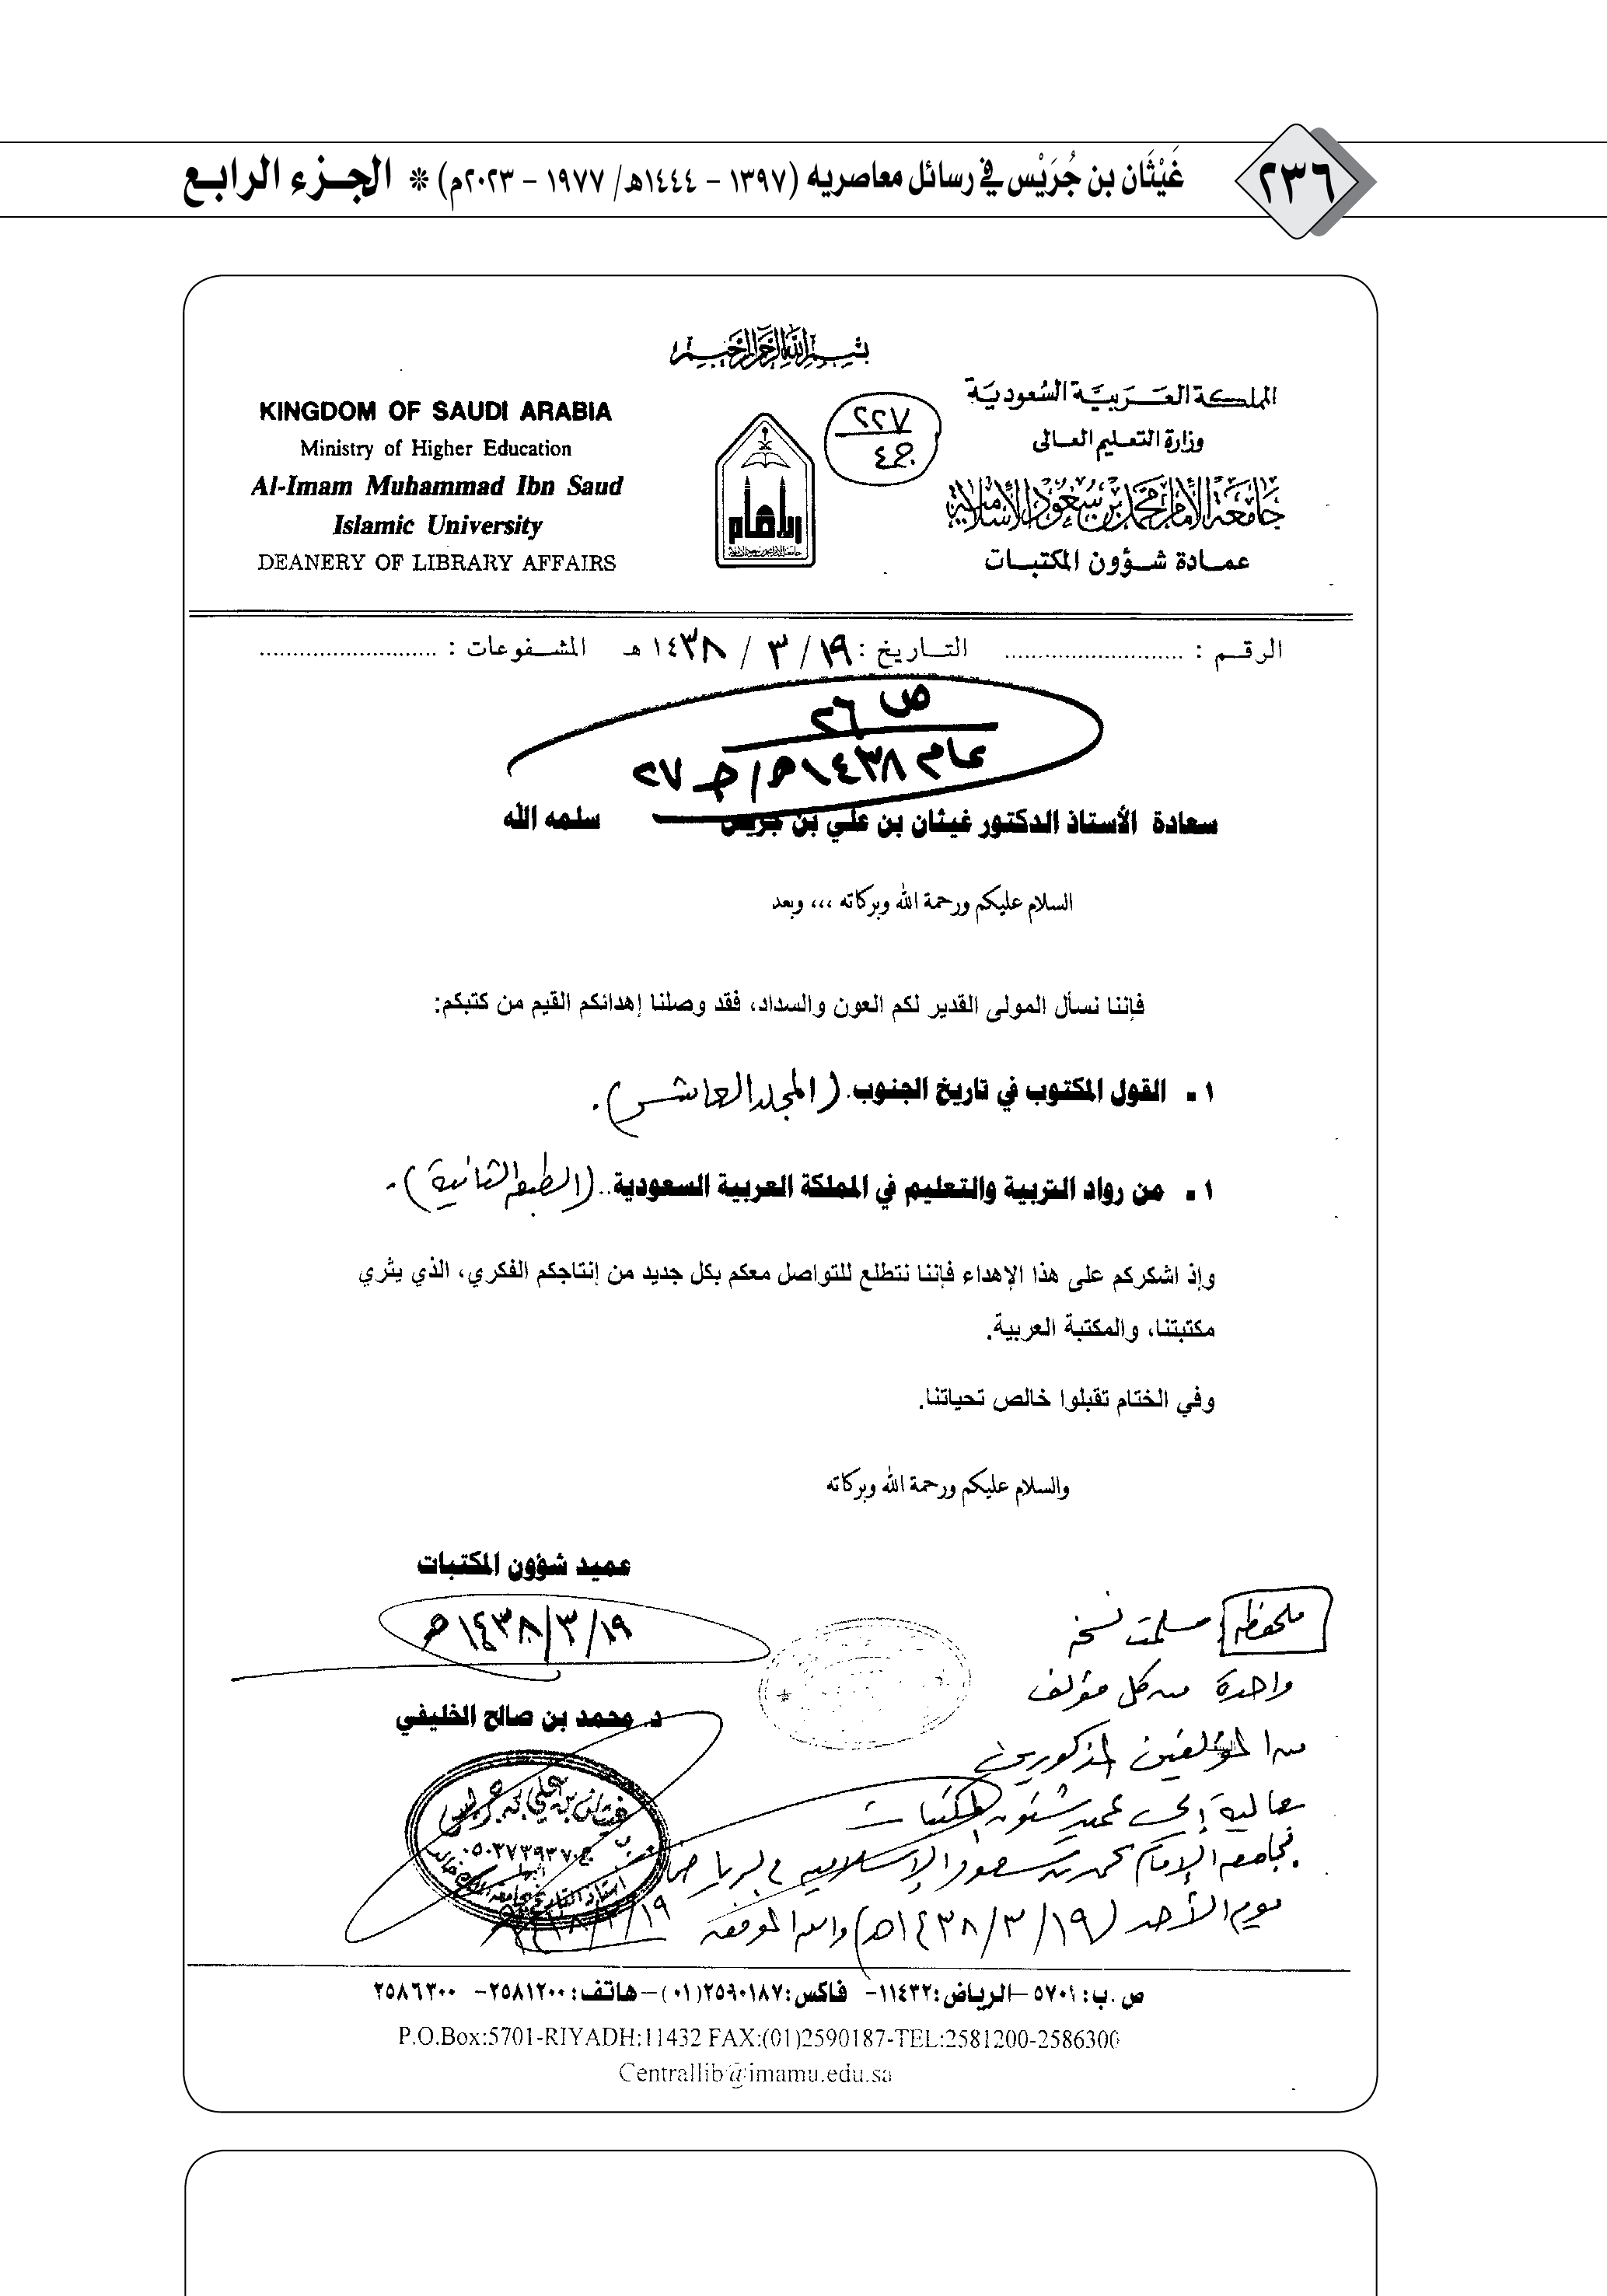 ٢٣٦
غَيْثَان بن جُرَيْس في رسائل معاصريه (١٣٩٧ – ١٤٤٤هـ/ ١٩٧٧ – ٢٠٢٣م) * الجـزء الرابـع
بسم الله الرحمن الرحيم
المملكة العربية السعودية
وزارة التعليم العالى
جامعة الإمام محمد بن سعود الإسلامية
عمادة شؤون المكتبات
٢٢٧
ج٤
KINGDOM OF SAUDI ARABIA
Ministry of Higher Education
Al-Imam Muhammad Ibn Saud
Islamic University
DEANERY OF LIBRARY AFFAIRS
الرقم : .......................... التاريخ : ١٩ / ٣ / ١٤٣٨ هـ المشفوعات : ..........................
ص ٢٦
عام ١٤٣٨هـ/ ج ٢٧
سعادة الأستاذ الدكتور غيثان بن علي بن جريس سلمه الله
السلام عليكم ورحمة الله وبركاته ،،، وبعد
فإننا نسأل المولى القدير لكم العون والسداد، فقد وصلنا إهدائكم القيم من كتبكم:
١ - القول المكتوب في تاريخ الجنوب. (المجلد العاشر).
١ - من رواد التربية والتعليم في المملكة العربية السعودية.. (الطبعة الثانية).
وإذ اشكركم على هذا الإهداء فإننا نتطلع للتواصل معكم بكل جديد من إنتاجكم الفكري، الذي يثري
مكتبتنا، والمكتبة العربية.
وفي الختام تقبلوا خالص تحياتنا.
والسلام عليكم ورحمة الله وبركاته
عميد شؤون المكتبات
١٩/ ٣/ ١٤٣٨هـ
د. محمد بن صالح الخليفي
غيثان بن علي بن جريس
ملحوظة: سلمت نسخة
واحدة من كل مؤلف
من المؤلفين المذكورين
عاليه إلى عميد شئون المكتبات
بجامعة الإمام محمد بن سعود الإسلامية في الرياض
يوم الأحد (١٩/ ٣/ ١٤٣٨هـ) والله الموفق
١٩/٣/١٤٣٨هـ
ص.ب: ٥٧٠١ –الرياض: ١١٤٣٢– فاكس: ٢٥٩٠١٨٧(٠١)–هاتف: ٢٥٨١٢٠٠– ٢٥٨٦٣٠٠
P.O.Box:5701-RIYADH:11432 FAX:(01)2590187-TEL:2581200-2586300
Centrallib@imamu.edu.sa